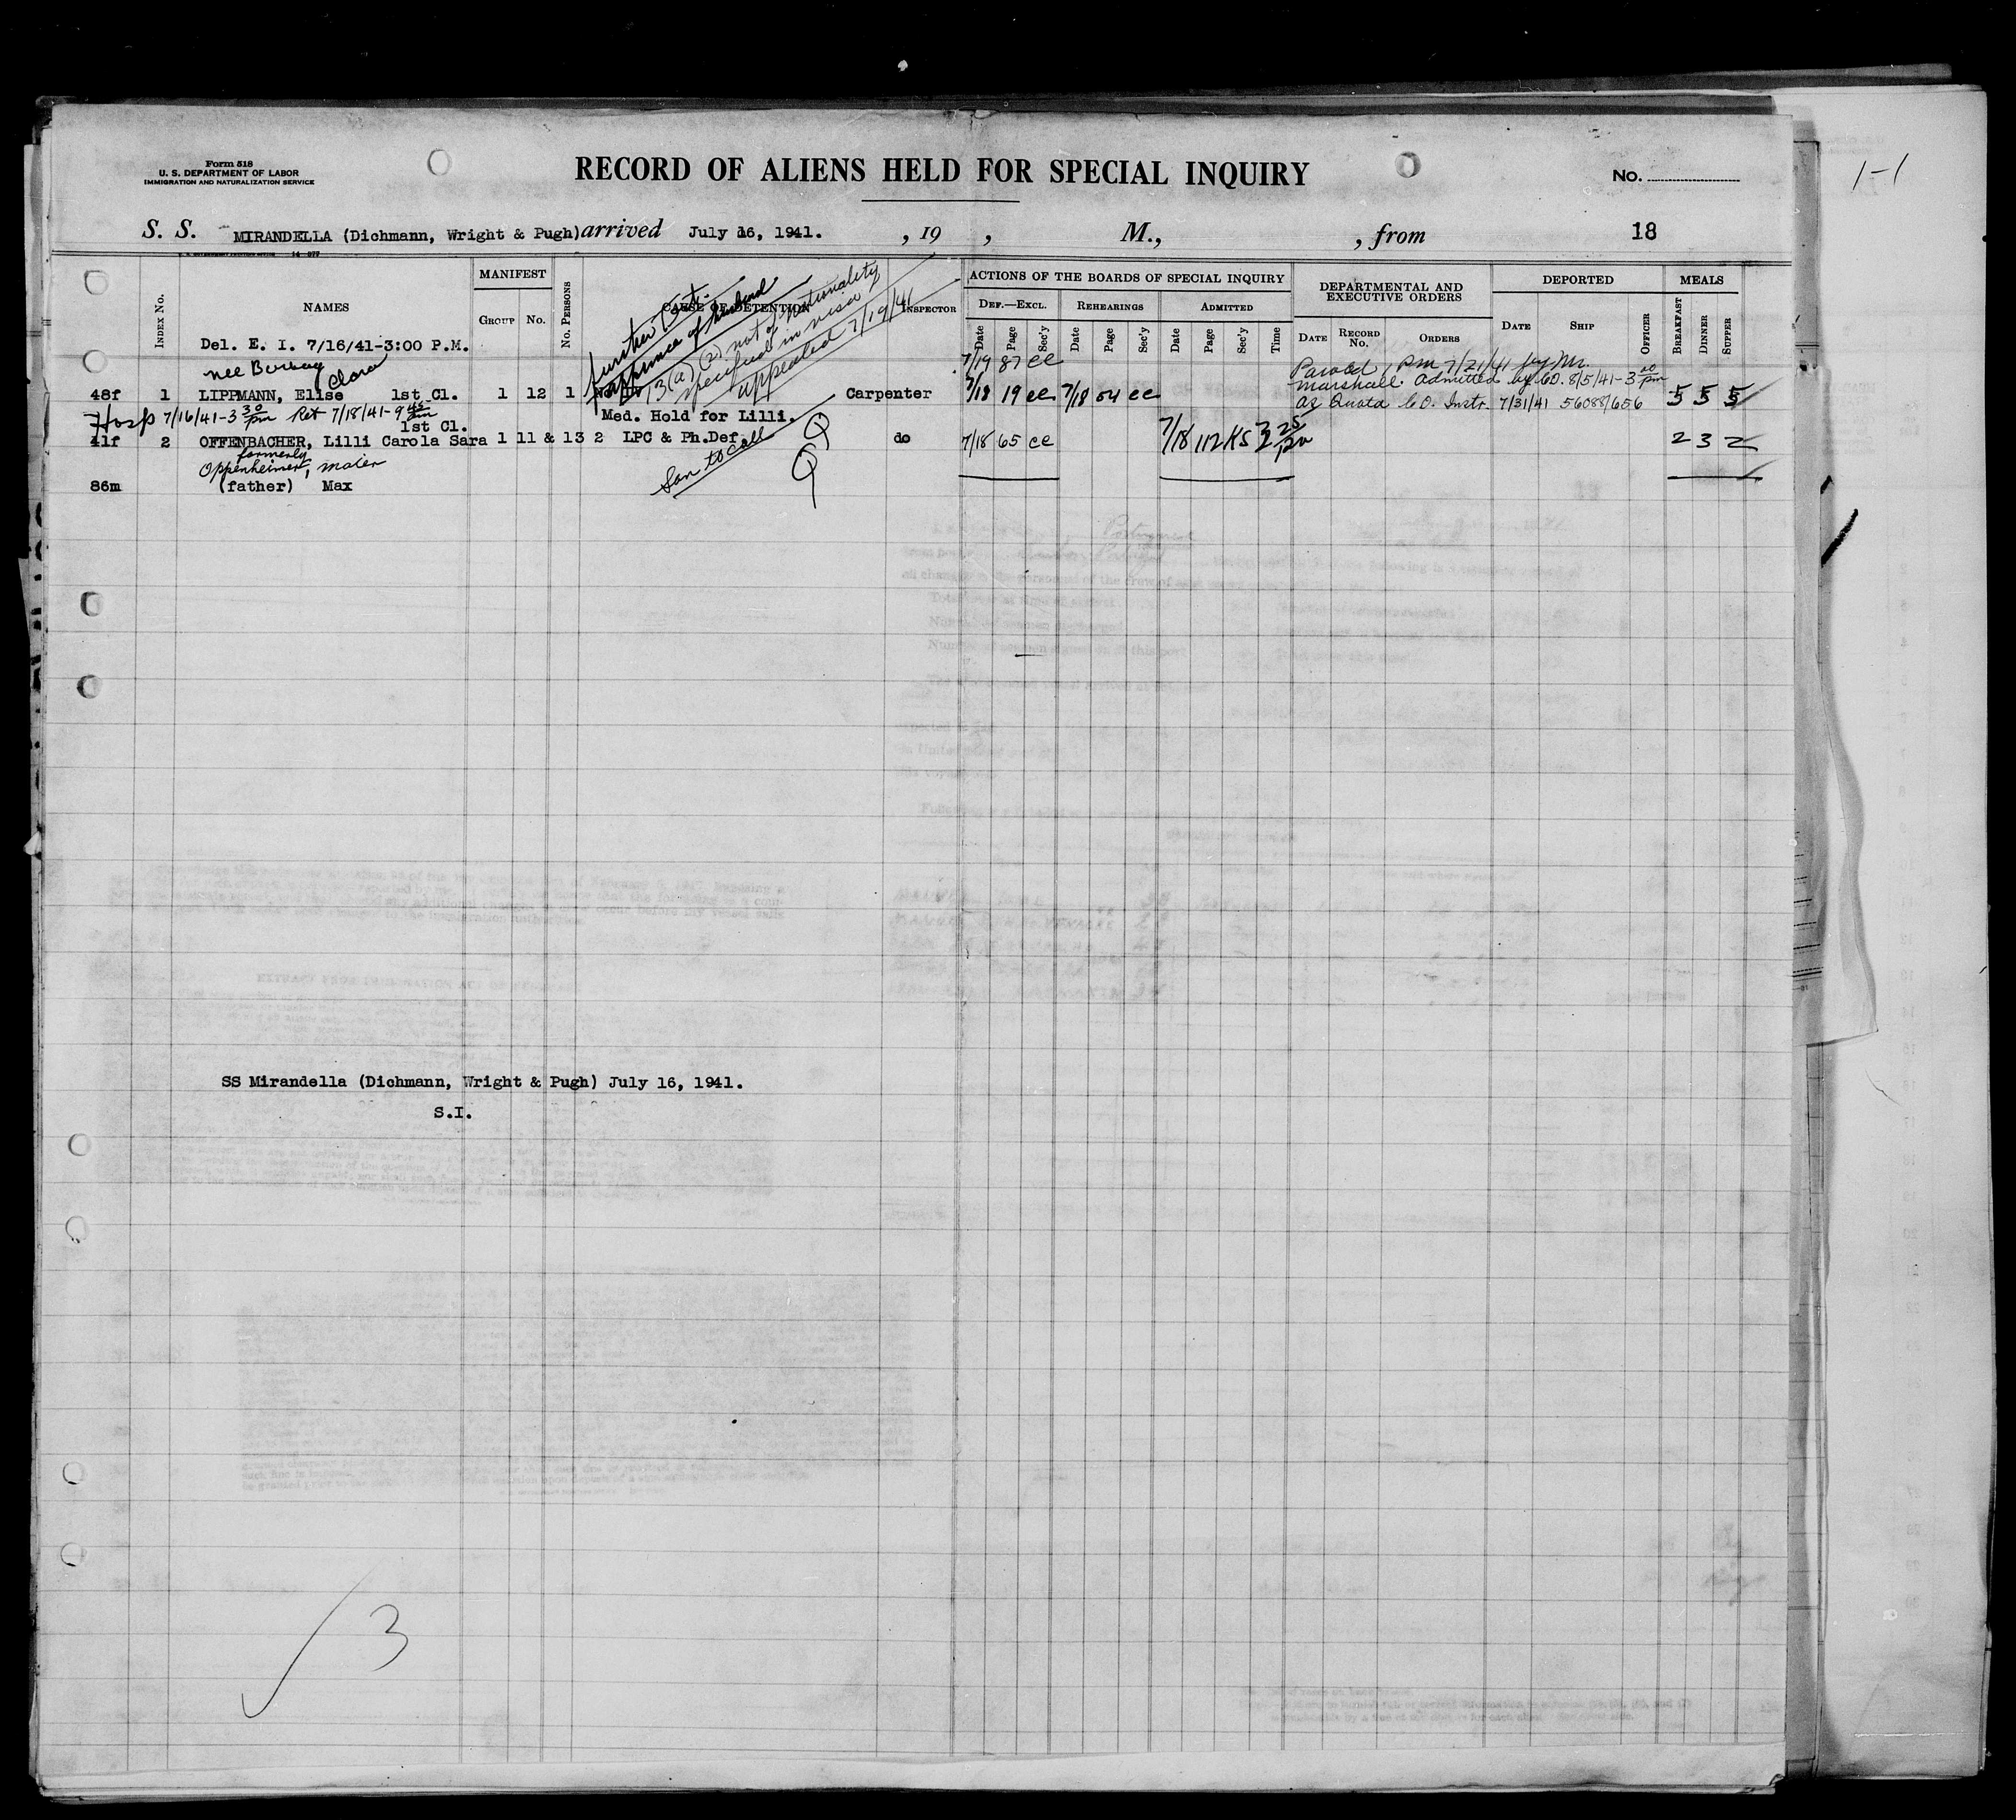 Form 518
U. S. DEPARTMENT OF LABOR
IMMIGRATION AND NATURALIZATION SERVICE
RECORD OF ALIENS HELD FOR SPECIAL INQUIRY
No.
1-1
S. S. MIRANDELLA (Dichmann, Wright & Pugh) arrived July 16, 1941. , 19 , M., , from 18
INDEX No.
NAMES
MANIFEST
GROUP No.
No. PERSONS
CAUSE OF DETENTION
INSPECTOR
ACTIONS OF THE BOARDS OF SPECIAL INQUIRY
DEF.—EXCL. REHEARINGS ADMITTED
Date Page Sec'y Date Page Sec'y Date Page Sec'y Time
DEPARTMENTAL AND EXECUTIVE ORDERS
DATE RECORD No. ORDERS
DEPORTED
DATE SHIP OFFICER
MEALS
BREAKFAST DINNER SUPPER
Del. E. I. 7/16/41-3:00 P.M.
further
appearance of husband
13(a)(2) not of nationality
specified in visa
appealed 7/19/41
7/19 87 ee
Paroled, PM 7/21/41
nee
Clara
Marshall. Admitted by CO. 8/5/41-3 00 pm
48f 1 LIPPMANN, Elise 1st Cl. 1 12 1 Carpenter 7/18 19 ee 7/18 54 ee 5 5 5
as Quota C.O. Instr. 7/31/41 56088/656
Hosp 7/16/41-3 30 pm Ret 7/18/41-9 45 am
Med. Hold for Lilli.
1st Cl.
41f 2 OFFENBACHER, Lilli Carola Sara 1 11 & 13 2 LPC & Ph.Def. do 7/18 65 ee 7/18 112 KS 3 25 pm 2 3 2
formerly
Oppenheimer, maier
Son to call
Q
Q
86m (father) Max
SS Mirandella (Dichmann, Wright & Pugh) July 16, 1941.
S.I.
3